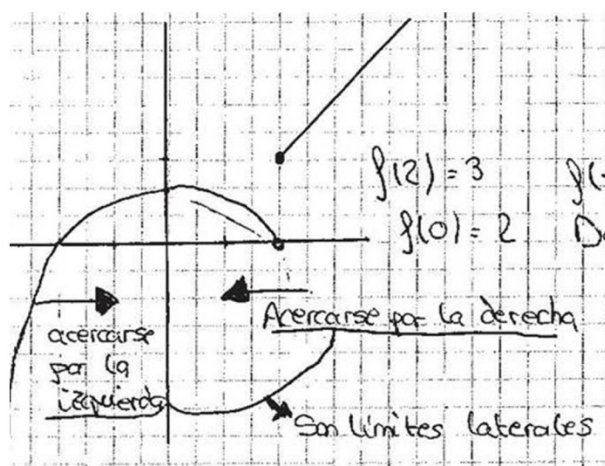 f(2) = 3 f(
f(0) = 2 D
acercarse
por la
izquierda
Acercarse por la derecha
Son límites laterales